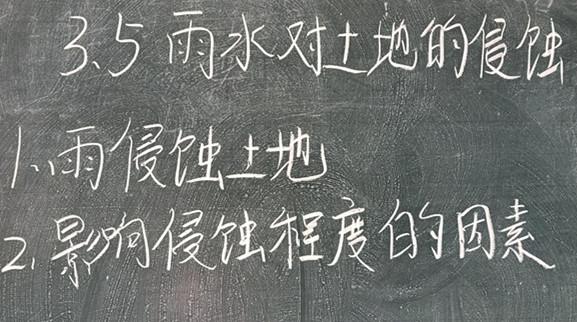 3.5 雨水对土地的侵蚀
1.雨侵蚀土地
2.影响侵蚀程度的因素